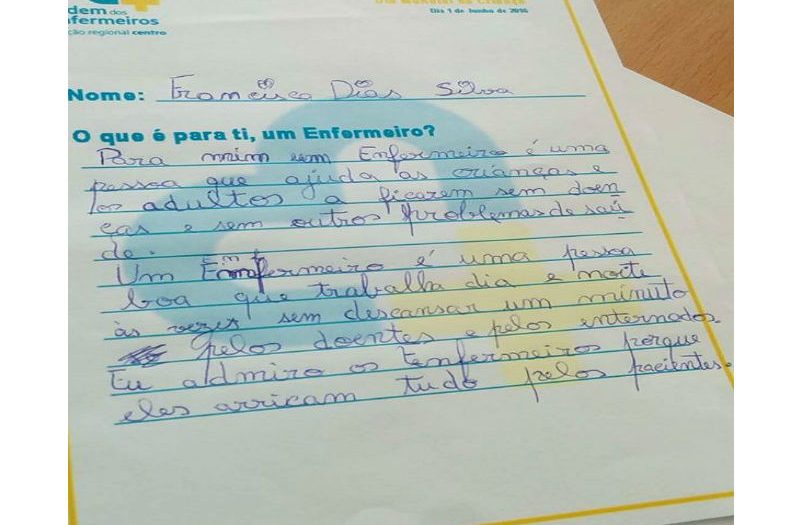 dem dos
fermeiros
ção regional centro
Dia Mundial da Criança
Dia 1 de Junho de 2016
Nome: Francisca Dias Silva
O que é para ti, um Enfermeiro?
Para mim um Enfermeiro é uma
pessoa que ajuda as crianças e
os adultos a ficarem sem doen
ças e sem outros problemas de saú
de.
Um Enfermeiro é uma pessoa
boa que trabalha dia e noite
às vezes sem descansar um minuto
pelos doentes e pelos enternados.
Eu admiro os Enfermeiros porque
eles arricam tudo pelos pacientes.